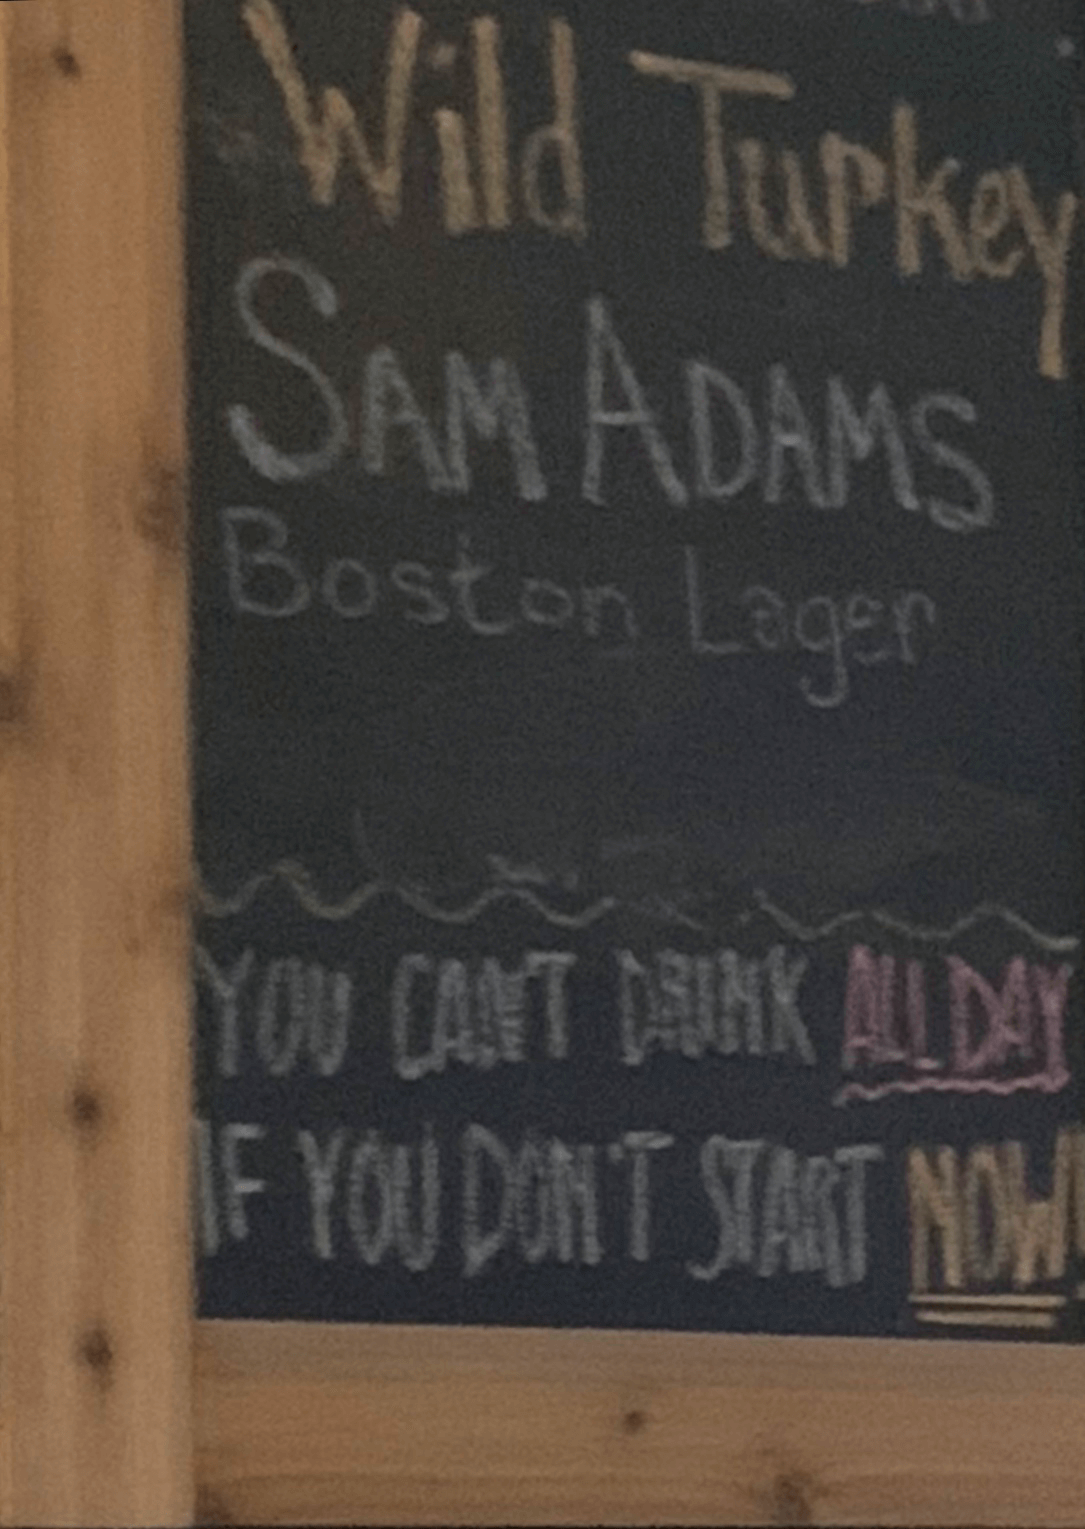 Wild Turkey
SAM ADAMS
Boston Lager
YOU CAN'T DRINK ALL DAY
IF YOU DON'T START NOW!